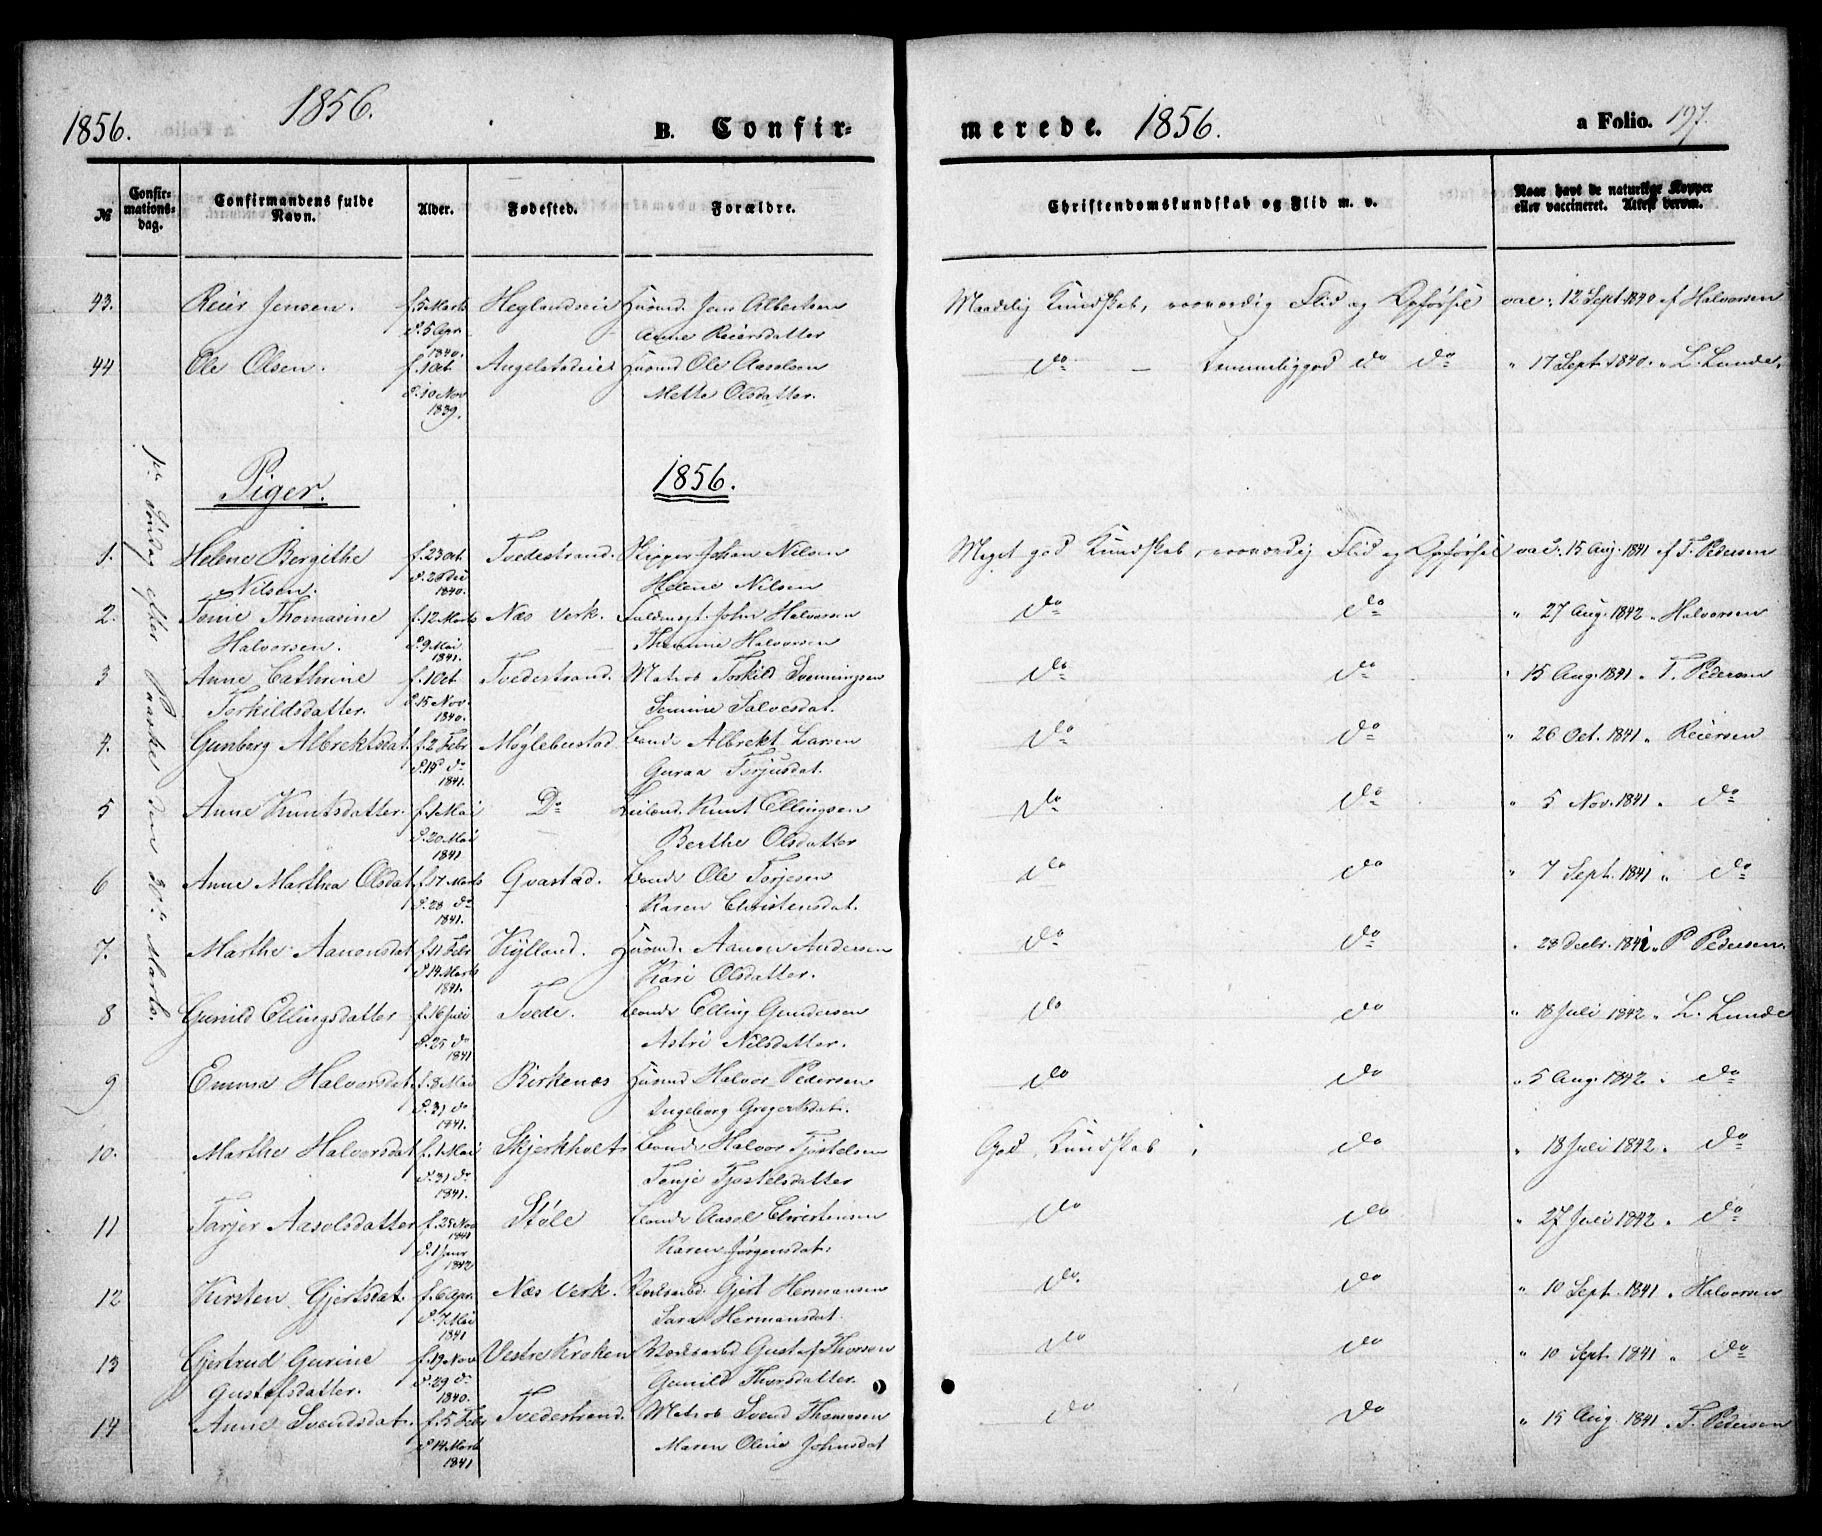 1856. 1856. B. Confir-
merede. 1856. a Folio. 197.
№ Confir-mations-dag. Confirmandens fulde Navn. Alder. Fødested. Forældre. Christendomskundskab og Flid m. v. Naar havt de naturlige Kopper eller vaccineret. Attest derom.
43. Reier Jensen. f. 5 Marts Heglandseie Huusmd. Jens Albertsen Maadelig Kundskab, roesværdig Flid og Opførsel vac: 12 Sept. 1840 af Halvorsen
d. 5 Apr. 1840. Anne Reiersdatter
44 Ole Olsen. f. 1 Oct. Angelstadeie Huusmd Ole Aasolsen do — temmeliggod do do " 17 Sept. 1840. " L. Lunde.
d. 10 Nov 1839. Mette Olsdatter.
Piger. 1856.
1ste Søndag efter Paaske den 30te Marts.
1. Helene Bergithe f. 23 Oct. Tvedestrand. Skipper Johan Nilsen Meget god Kundskab, roesværdig Flid og Opførsel vac. 15 Aug. 1841 af T. Pedersen
Nilsen. d. 26 Dec 1840. Helene Nilsen
2. Tonie Thomasine f. 12 Marts Næs Verk. Fuldmægt. John Halvorsen do do " 27 Aug. 1842 " Halvorsen
Halvorsen. d. 9 Mai 1841. Thomine Halvorsen
3 Anne Cathrine f. 1 Oct. Tvedestrand. Matros Torkild Svenningsen do do " 15 Aug. 1841 " T. Pedersen
Torkildsdatter. d. 15 Nov. 1840. Semine Salvesdat.
4. Gunborg Albrektsdat. f. 2 Febr Møglebustad. Bonde Albrekt Larsen do do " 26 Oct. 1841 " Reiersen
d. 14 do 1841. Guraa Torjusdat.
5 Anne Knutsdatter. f. 1 Mai Do Leilænd. Knut Ellingsen do do " 5 Nov. 1841 " do
d. 20 Mai 1841 Berthe Olsdatter
6 Anne Marthea Olsdat. f. 17 Marts Gvastad. Bonde Ole Torjesen do do " 7 Sept. 1841 " do
d. 28 do 1841. Karen Christensdat.
7. Marthe Aanonsdat f. 11 Febr Kylland. Huusmd. Aanon Andersen do do " 28 Decbr. 1841 " P Pedersen.
d. 14 Marts 1841. Kari Olsdatter.
8 Gunild Ellingsdatter f. 16 Juli Tvede. Bonde Elling Gundersen do do " 18 Juli 1842 " L. Lunde
d. 25 do 1841 Astri Nilsdatter.
9 Emma Halvorsdat. f. 8 Mai Birkenæs Huusmd Halvor Pedersen do do " 5 Aug. 1842 " do
d. 31 do 1841. Ingeborg Gregertsdat.
10. Marthe Halvorsdat f. 1 Mai Skjerkholt Bonde Halvor Tjøstelsen God Kundskab, do " 18 Juli 1842 " do
d. 31 do 1841. Tonje Tjøstelsdatter
11 Tarjer Aasolsdatter f. 25 Nov 1841 Støle Bonde Aasol Christensen do do " 27 Juli 1842 " do
d. 1 Janr 1842 Karen Jørgensdat.
12 Kirsten Gjertsdat. f. 6 Apr. Næs Verk. Verksarbd. Gjert Hermansen do do " 10 Sept. 1841 " Halvorsen
d. 7 Mai 1841 Sara Hermansdat.
13 Gjertrud Gurine f. 19 Nov Vestre Kroken Verksarbd Gustaf Thorsen do do " 10 Sept. 1841 " do
Gustafsdatter. d. 29 do 1840. Gunild Thorsdatter.
14 Anne Svendsdat. f. 5 Febr Tvedestrand. Matros Svend Thomesen do do " 15 Aug. 1841 " T. Pedersen
d. 14 Marts 1841 Maren Oline Johnsdat